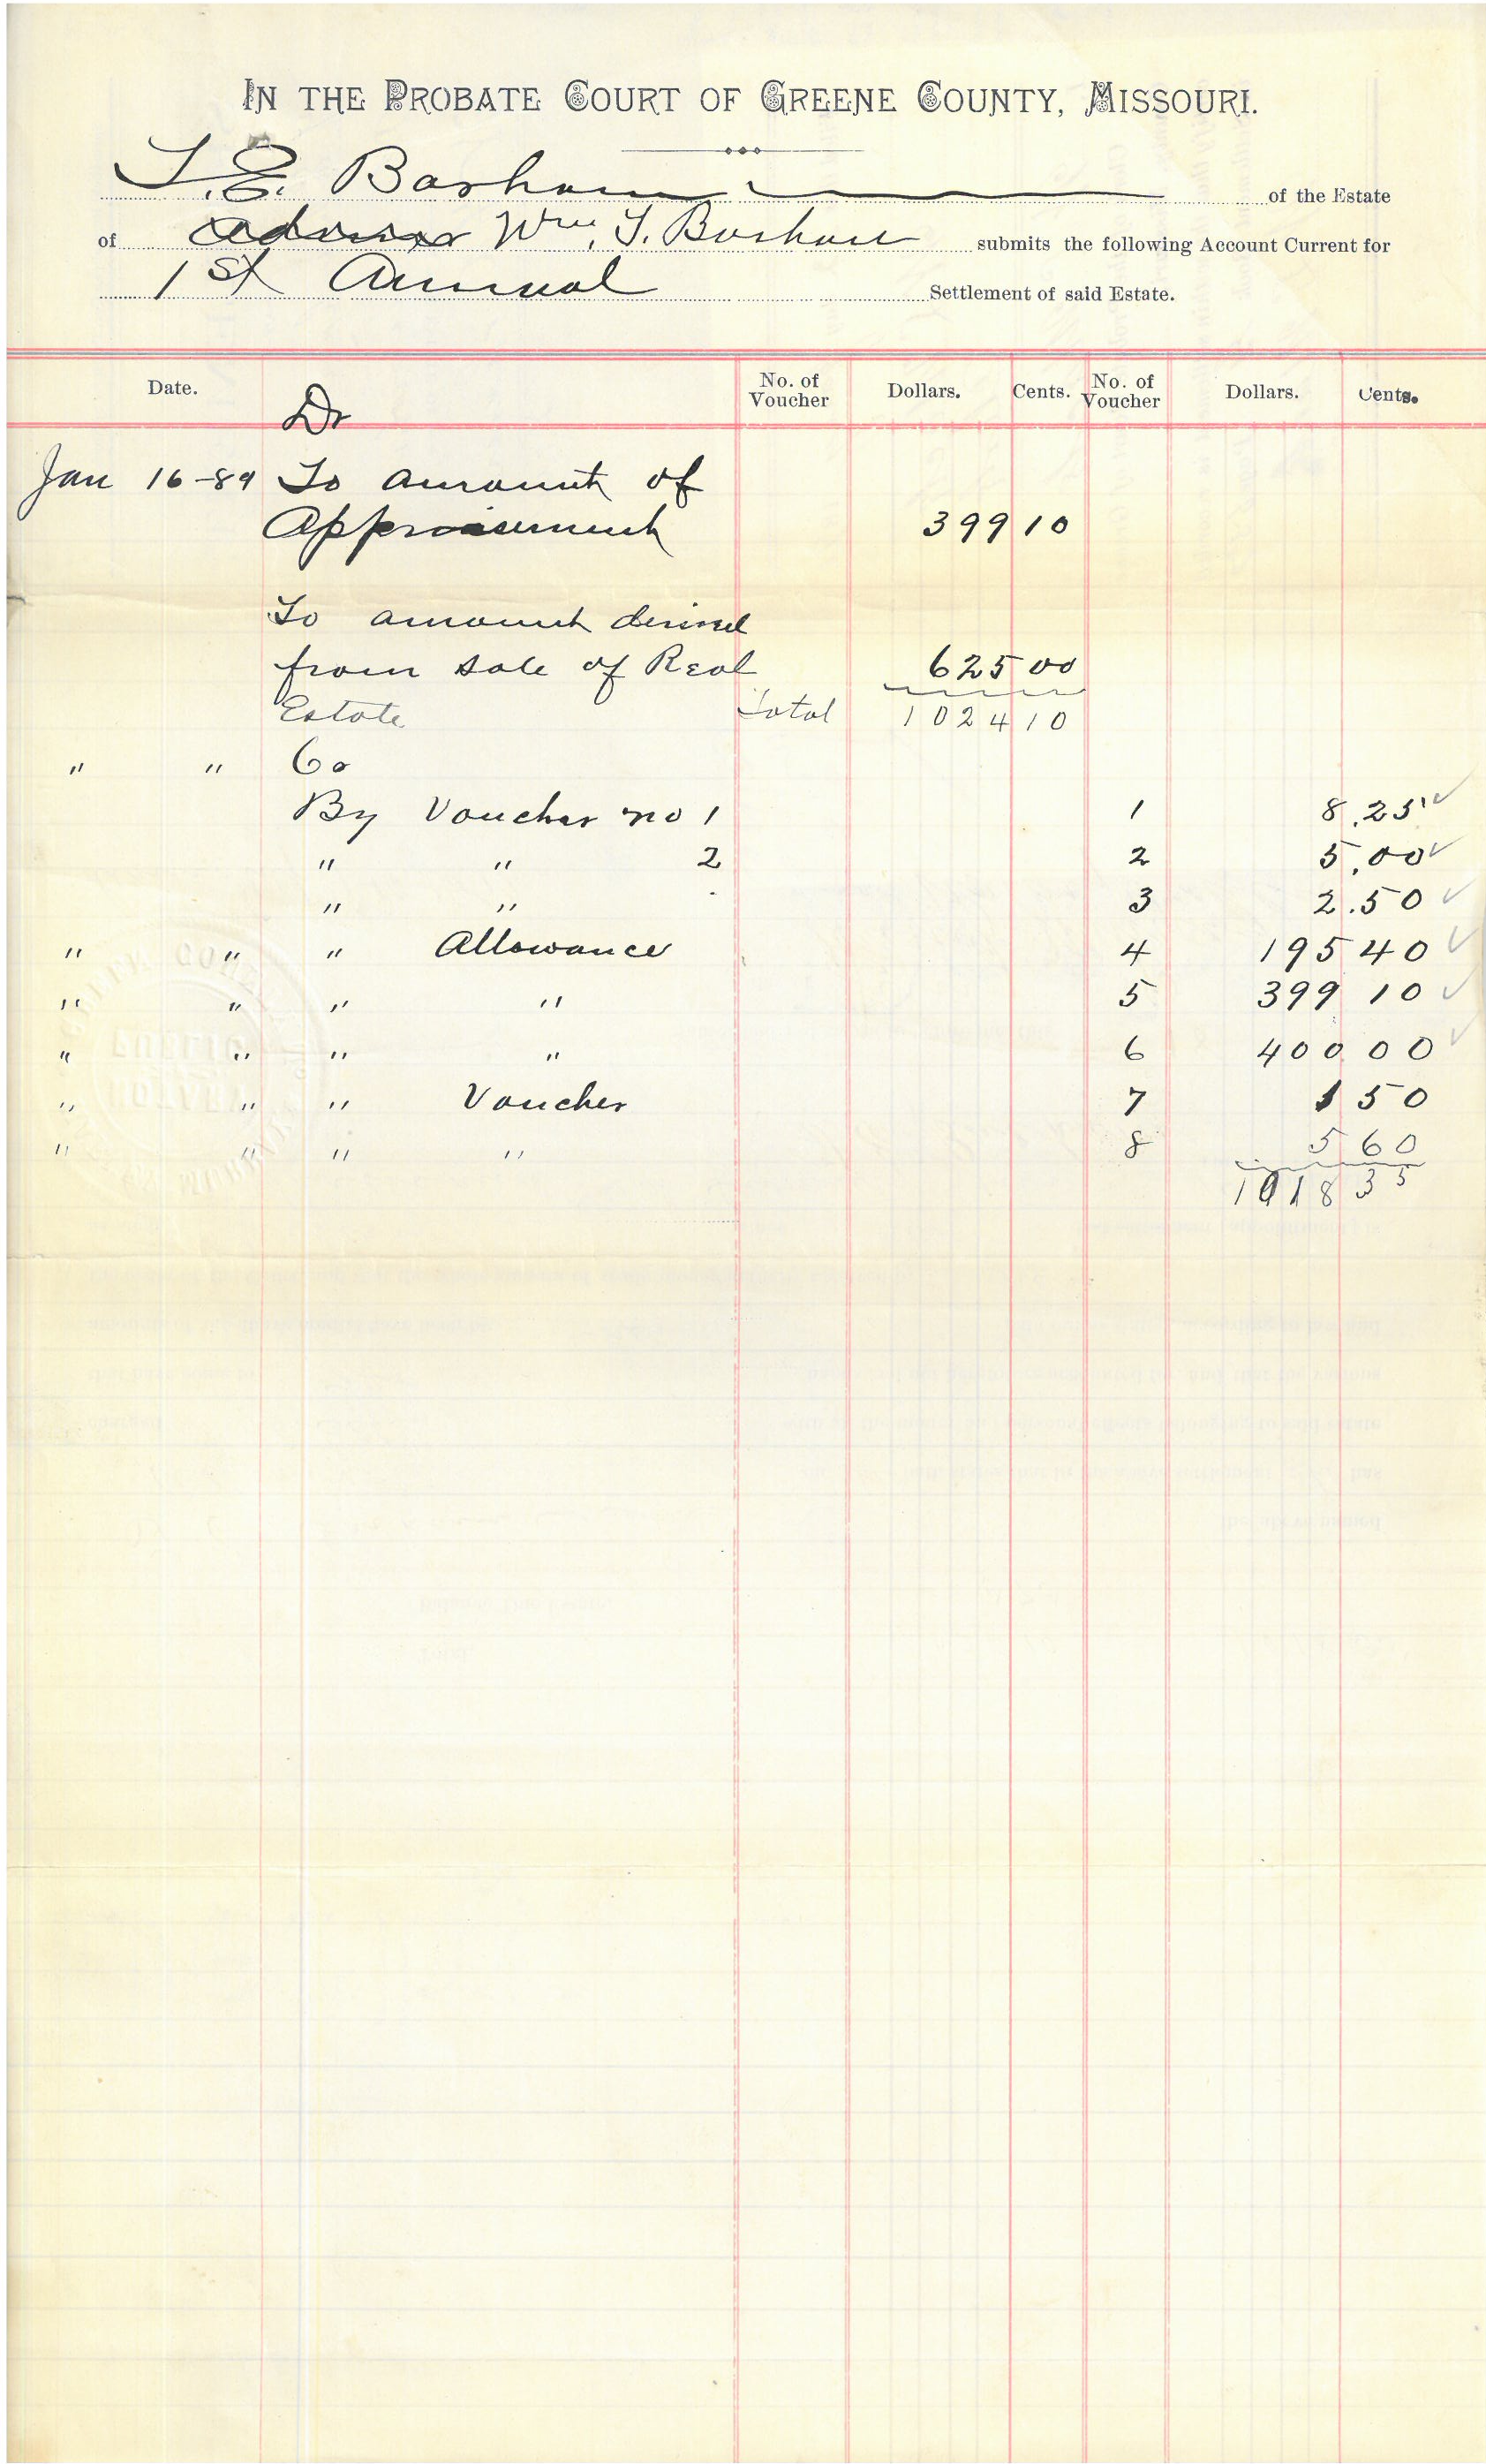 IN THE PROBATE COURT OF GREENE COUNTY, MISSOURI.
T. E. Basham of the Estate
of Wm. T. Basham submits the following Account Current for
1st Annual Settlement of said Estate.
Date. No. of Voucher Dollars. Cents. No. of Voucher Dollars. Cents.
Dr
Jan 16-89 To amount of
Appraisement 399 10
To amount derived
from sale of Real 625 00
Estate Total 1024 10
" " Co
By Voucher no 1 1 8.25 ✓
" " 2 2 5.00 ✓
" " 3 2.50 ✓
" " " Allowance 4 195 40 ✓
" " " " 5 399 10 ✓
" " " " 6 400 00 ✓
" " " Voucher 7 1 50
" " " " 8 5 60
1018 35